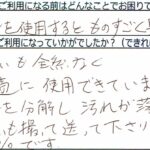 ご利用になる前はどんなことでお困りで
を使用するとものすごく
ご利用になっていかがでしたか？（できれ
も全然なく
に使用できていま
を分解し汚れが
も撮って送って下さり
です。